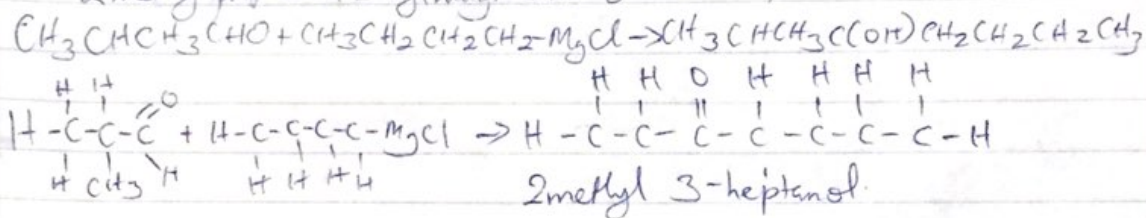 CH3CHCH3CHO + CH3CH2CH2CH2-MgCl → CH3CHCH3C(OH)CH2CH2CH2CH3
H H O H H H H
H H O
H-C-C-C + H-C-C-C-C-MgCl → H-C-C-C-C-C-C-C-H
H CH3 H H H H H
2methyl 3-heptanol.